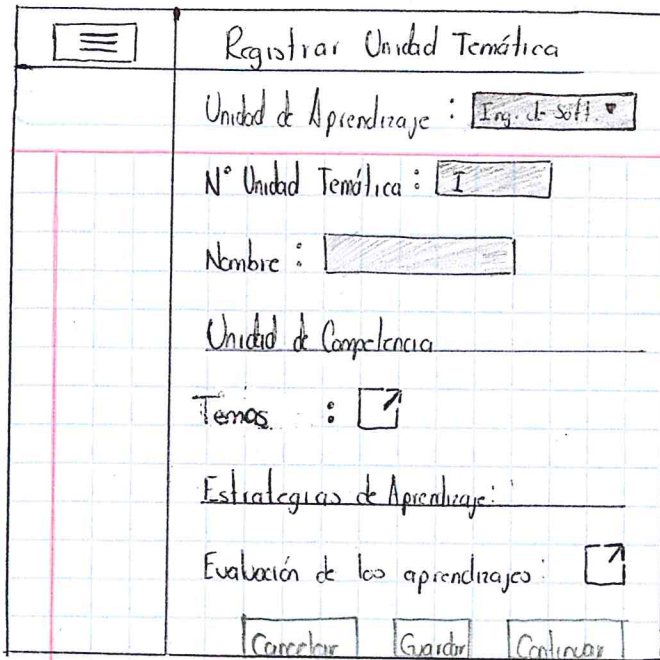 Registrar Unidad Temática
Unidad de Aprendizaje : Ing. de Soft.
N° Unidad Temática : I
Nombre :
Unidad de Competencia
Temas :
Estrategias de Aprendizaje:
Evaluación de los aprendizajes:
Cancelar Guardar Continuar